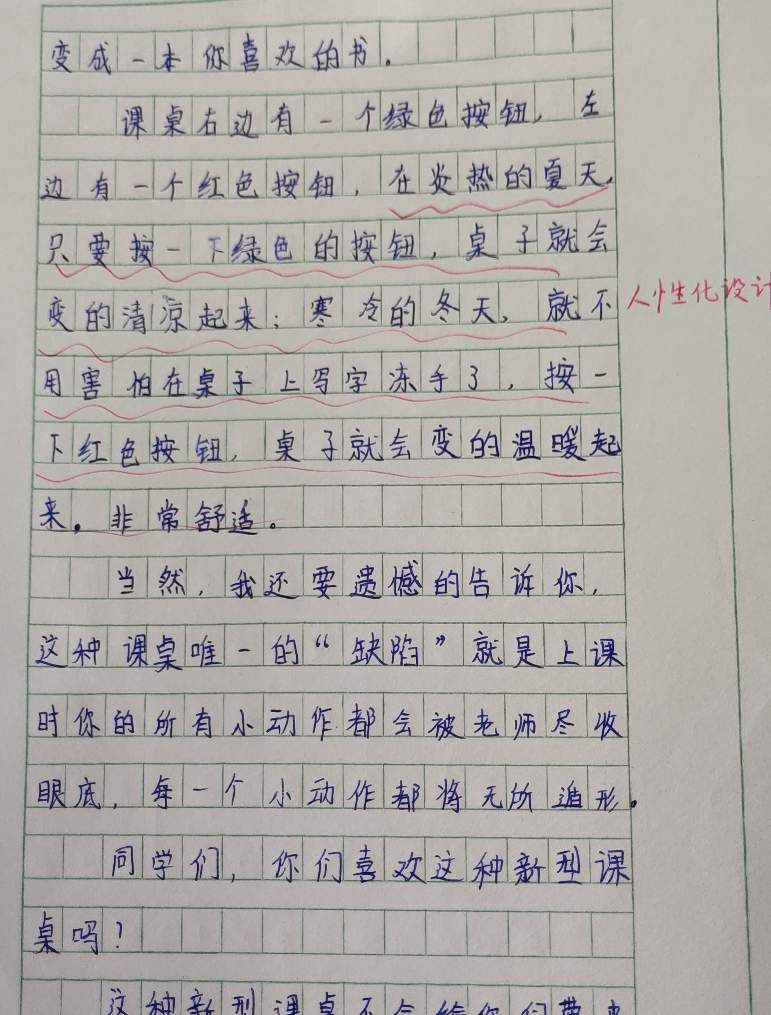 变成一本你喜欢的书。
课桌右边有一个绿色按钮，左
边有一个红色按钮，在炎热的夏天，
只要按一下绿色的按钮，桌子就会
变的清凉起来；寒冷的冬天，就不
人性化设计
用害怕在桌子上写字冻手了，按一
下红色按钮，桌子就会变的温暖起
来。非常舒适。
当然，我还要遗憾的告诉你，
这种课桌唯一的“缺陷”就是上课
时你的所有小动作都会被老师尽收
眼底，每一个小动作都将无所遁形。
同学们，你们喜欢这种新型课
桌吗？
这种新型课桌不会给你们带来